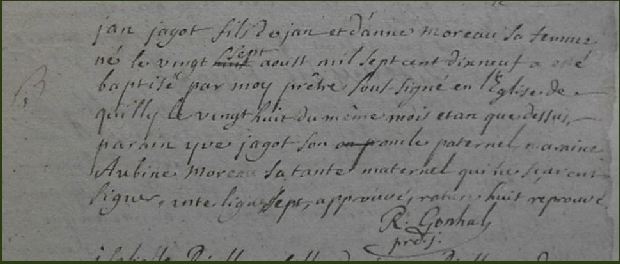 jan jagot fils de jan et d'anne moreau sa femme
né le vingt sept aoust mil sept cent dix neuf a esté
baptisé par moy prêtre sous signé en l'Eglise de
quilly le vingt huit du même mois et an que dessus,
parain yve jagot son oncle paternel maraine
Aubine moreau sa tante maternel qui ne sçavent
signer, interligne sept, approuvé, rature huit reprouvé
R: Gonhay